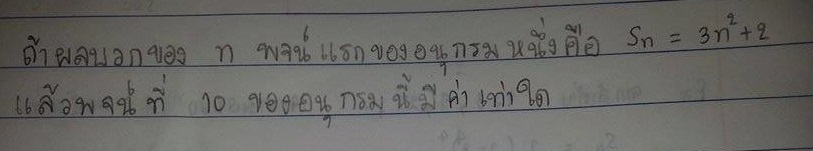 ถ้าผลบวกของ n พจน์แรกของอนุกรมหนึ่งคือ Sn = 3n²+2
แล้วพจน์ที่ 10 ของอนุกรมนี้มีค่าเท่าใด